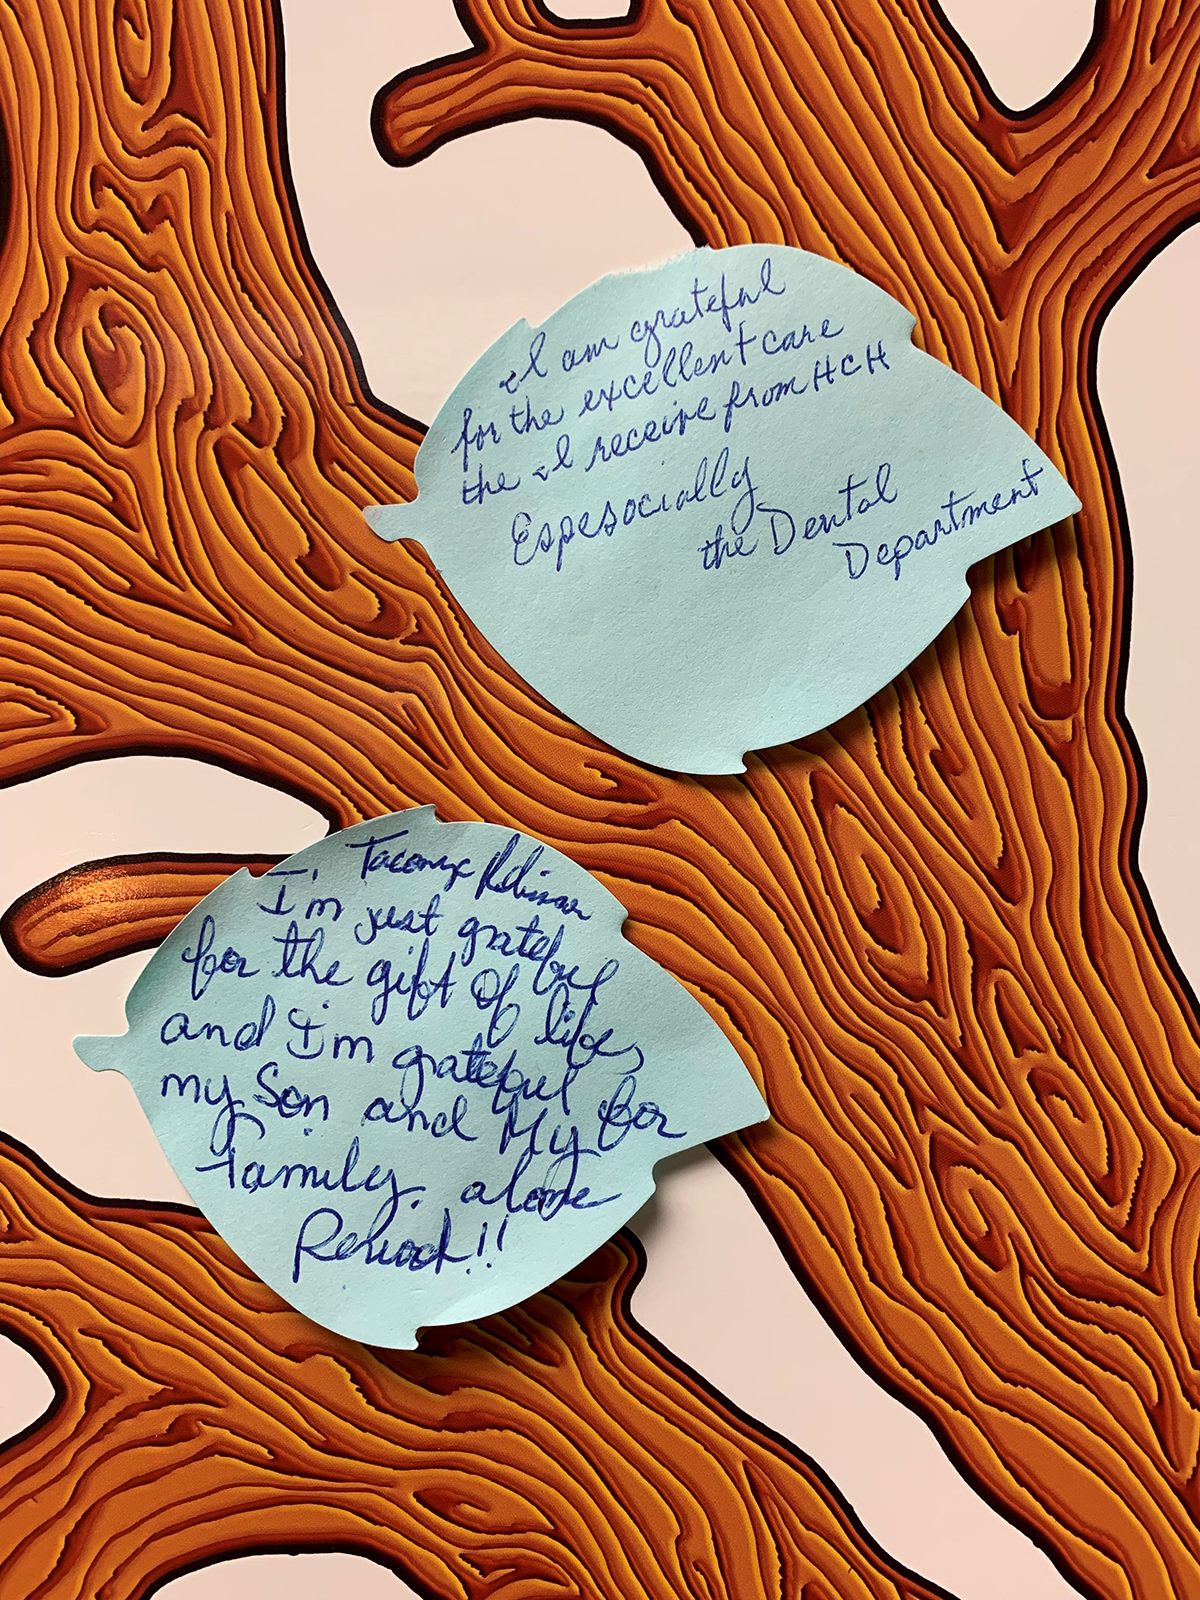 I am grateful
for the excellent care
the I receive from HCH
Espesocially
the Dental
Department
I'm just grateful
for the gift of life,
and I'm grateful for
my Son and My
family. alone